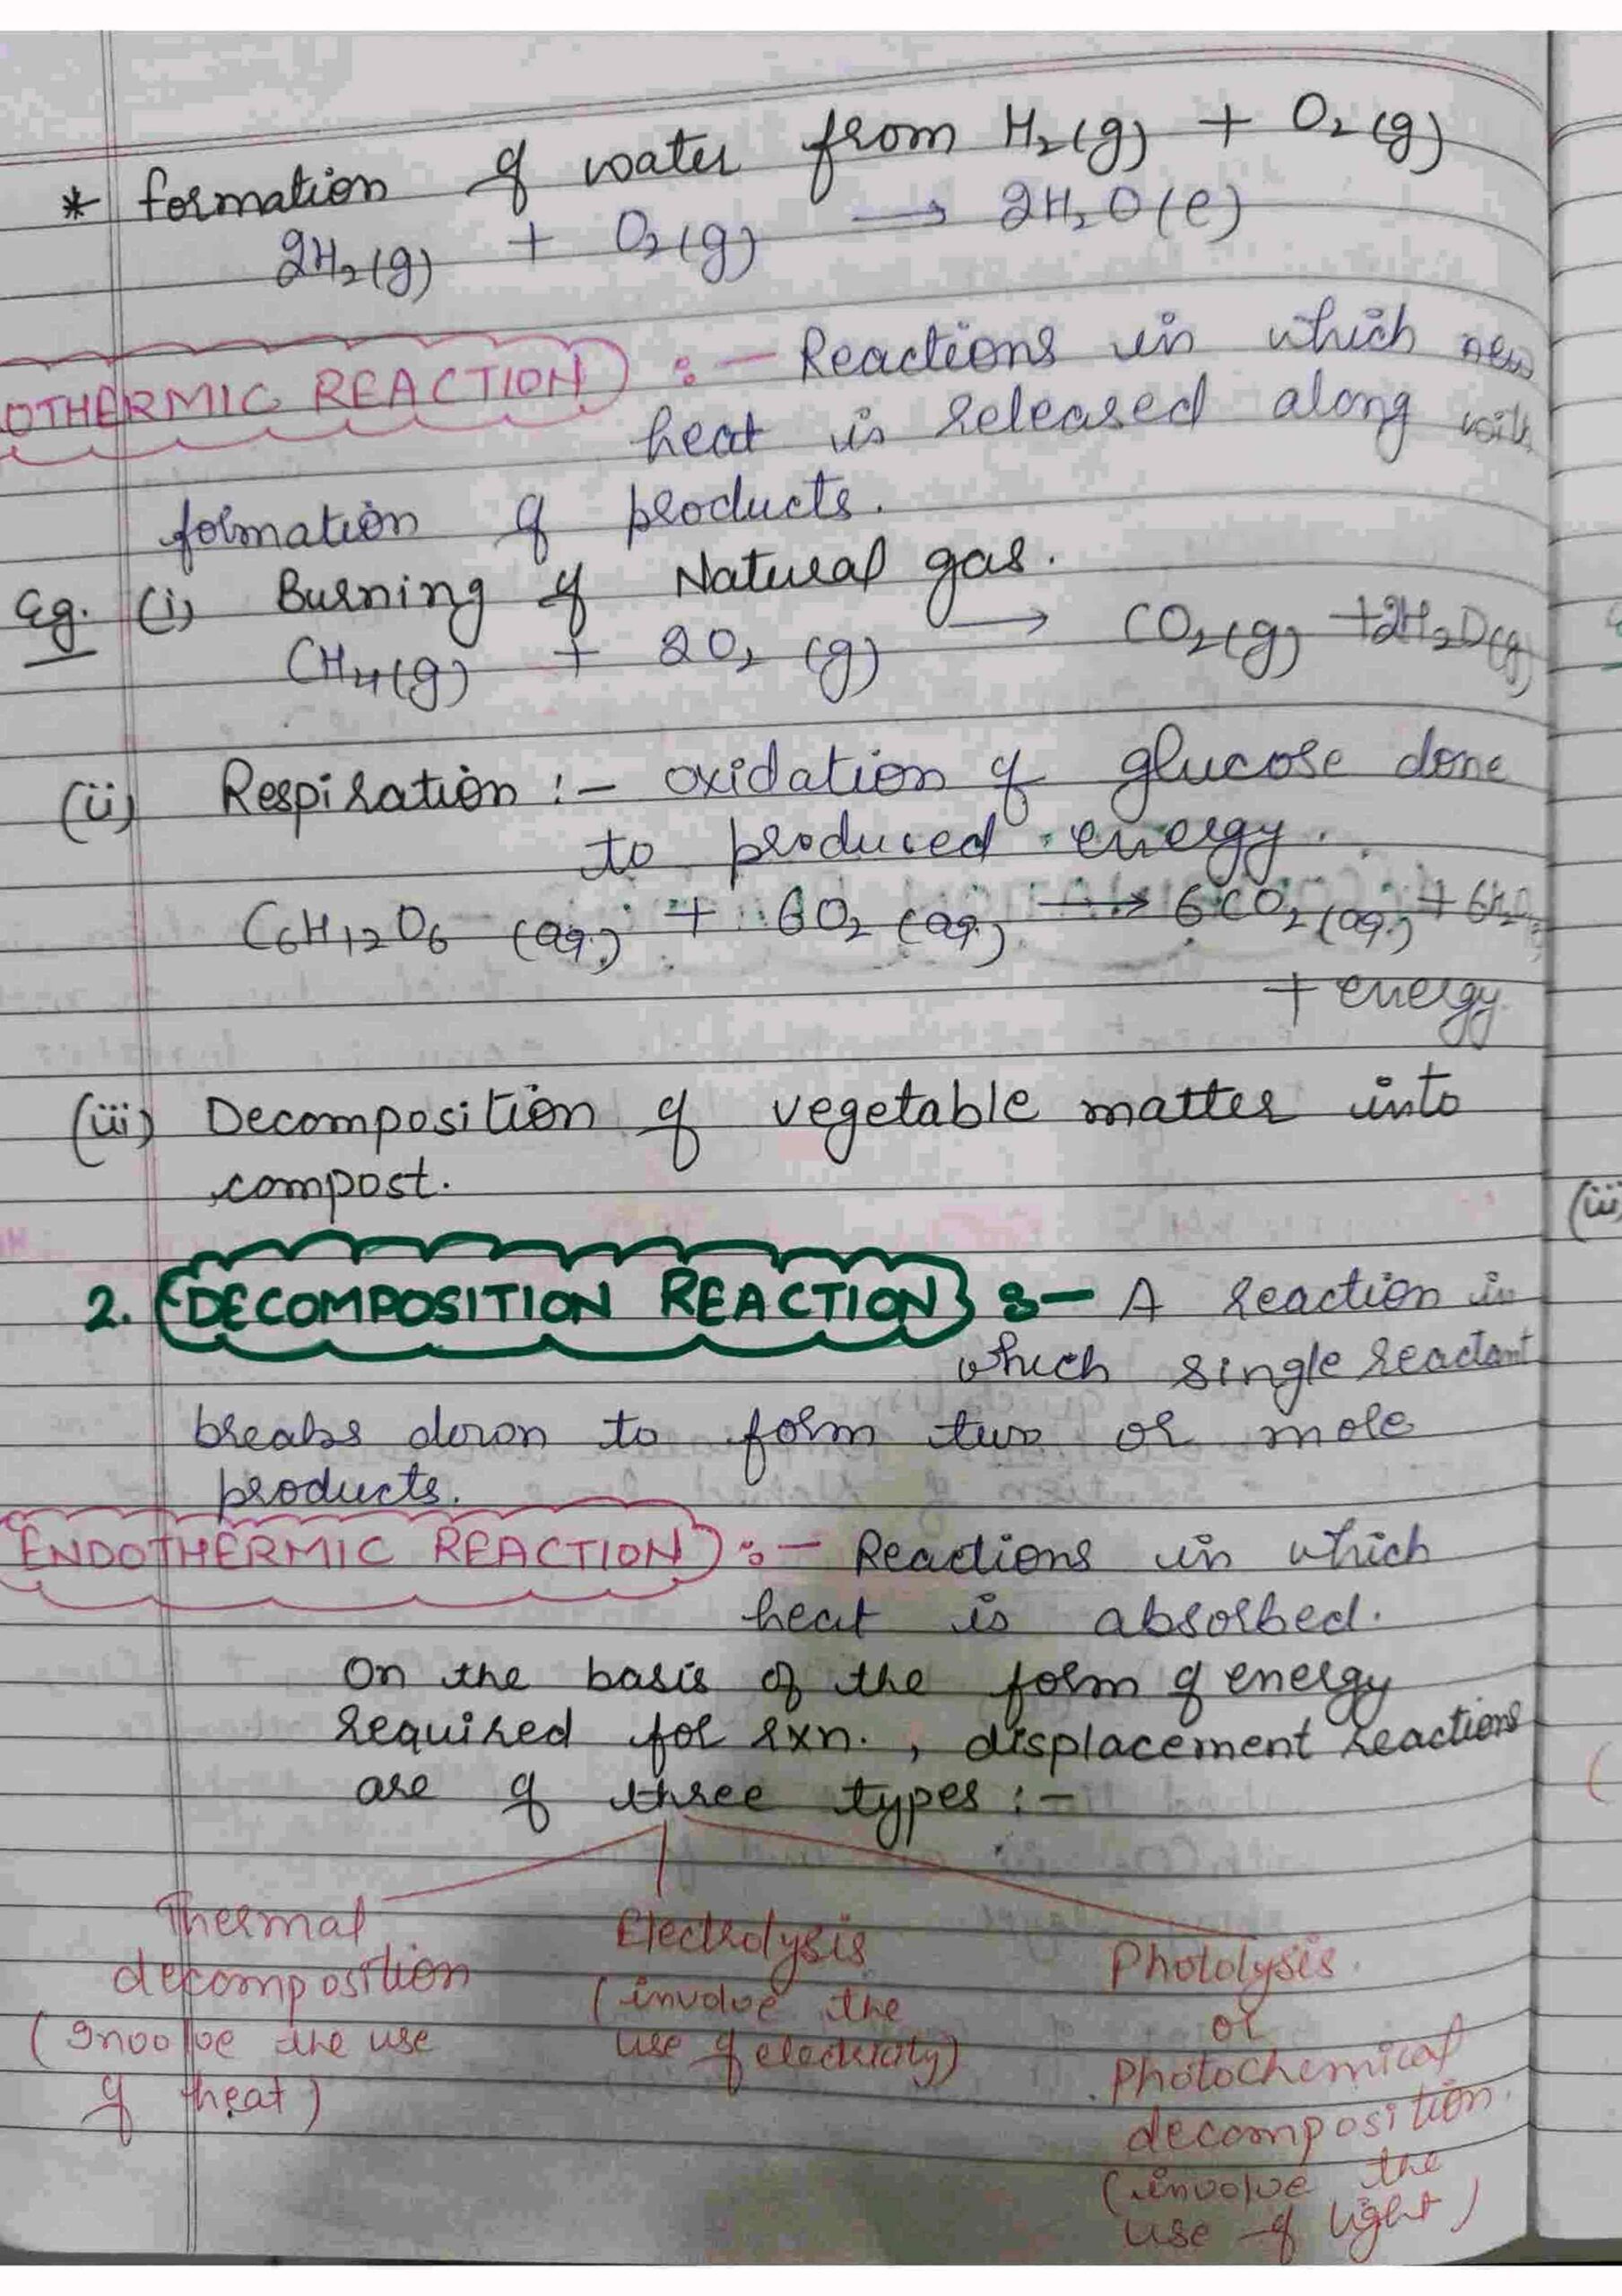 * formation of water from H₂(g) + O₂(g)
2H₂(g) + O₂(g) → 2H₂O(l)
OTHERMIC REACTION :- Reactions in which
heat is released along with
formation of products.
Eg. (i) Burning of Natural gas.
CH₄(g) + 2O₂ (g) → CO₂(g) + 2H₂O(g)
(ii) Respiration :- oxidation of glucose done
to produced energy.
C₆H₁₂O₆ (aq.) + 6O₂ (aq.) → 6CO₂ (aq.) + 6H₂O
+ energy
(iii) Decomposition of vegetable matter into
compost.
2. DECOMPOSITION REACTION :- A reaction in
which single reactant
breaks down to form two or more
products.
ENDOTHERMIC REACTION :- Reactions in which
heat is absorbed.
On the basis of the form of energy
required for rxn. , displacement reactions
are of three types :-
Thermal
decomposition
(Involve the use
of heat)
Electrolysis
(involve the
use of electricity)
Photolysis
or
Photochemical
decomposition.
(involve the
use of light)
(iii)